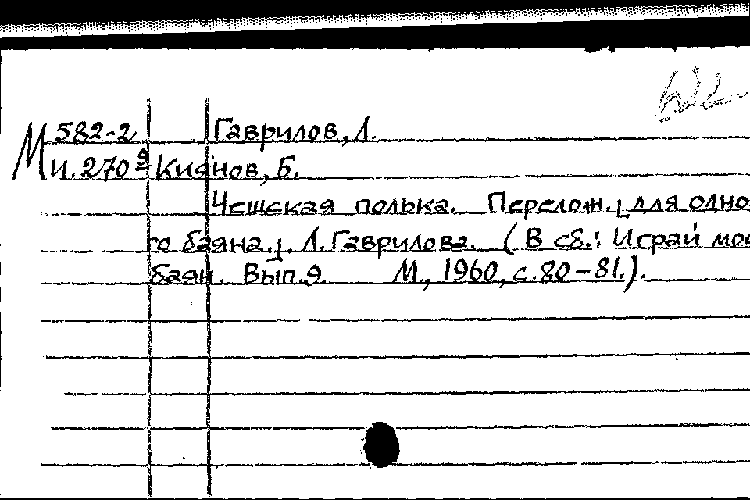 М 582-2 Гаврилов, Л.
И. 270 9 Киянов, Б.
Чешская полька. Перелож. [для одно
го баяна.]. Л. Гаврилова. (В сб.: Играй мой
баян. Вып. 9. М., 1960, с. 80-81.).